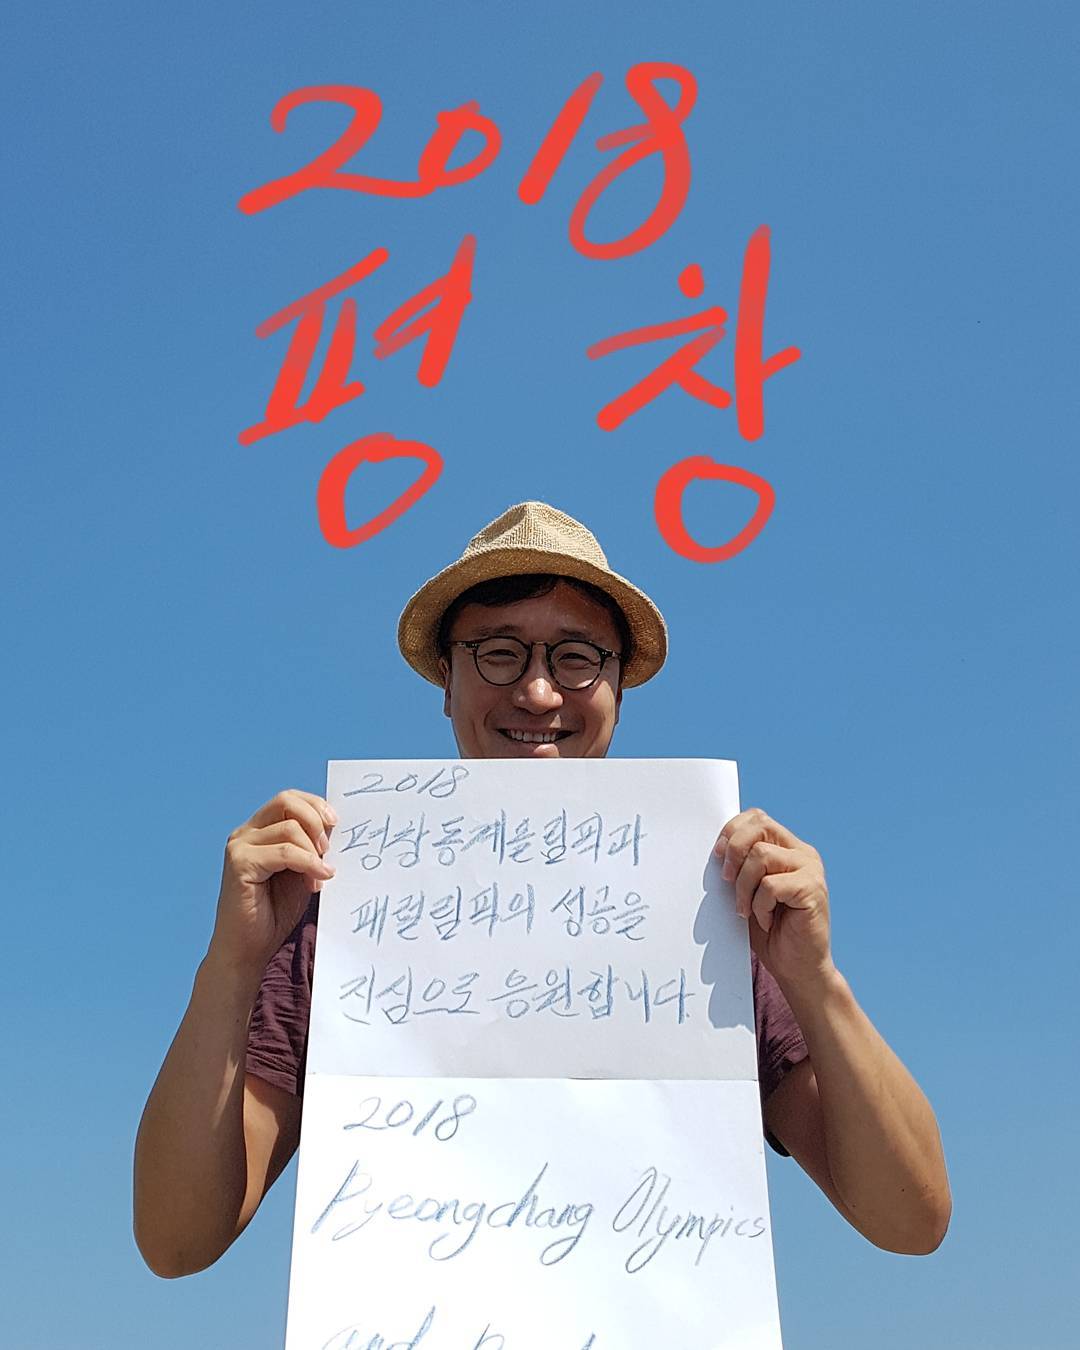 2018
평창
2018
평창동계올림픽과
패럴림픽의 성공을
진심으로 응원합니다.
2018
Pyeongchang Olympics
and